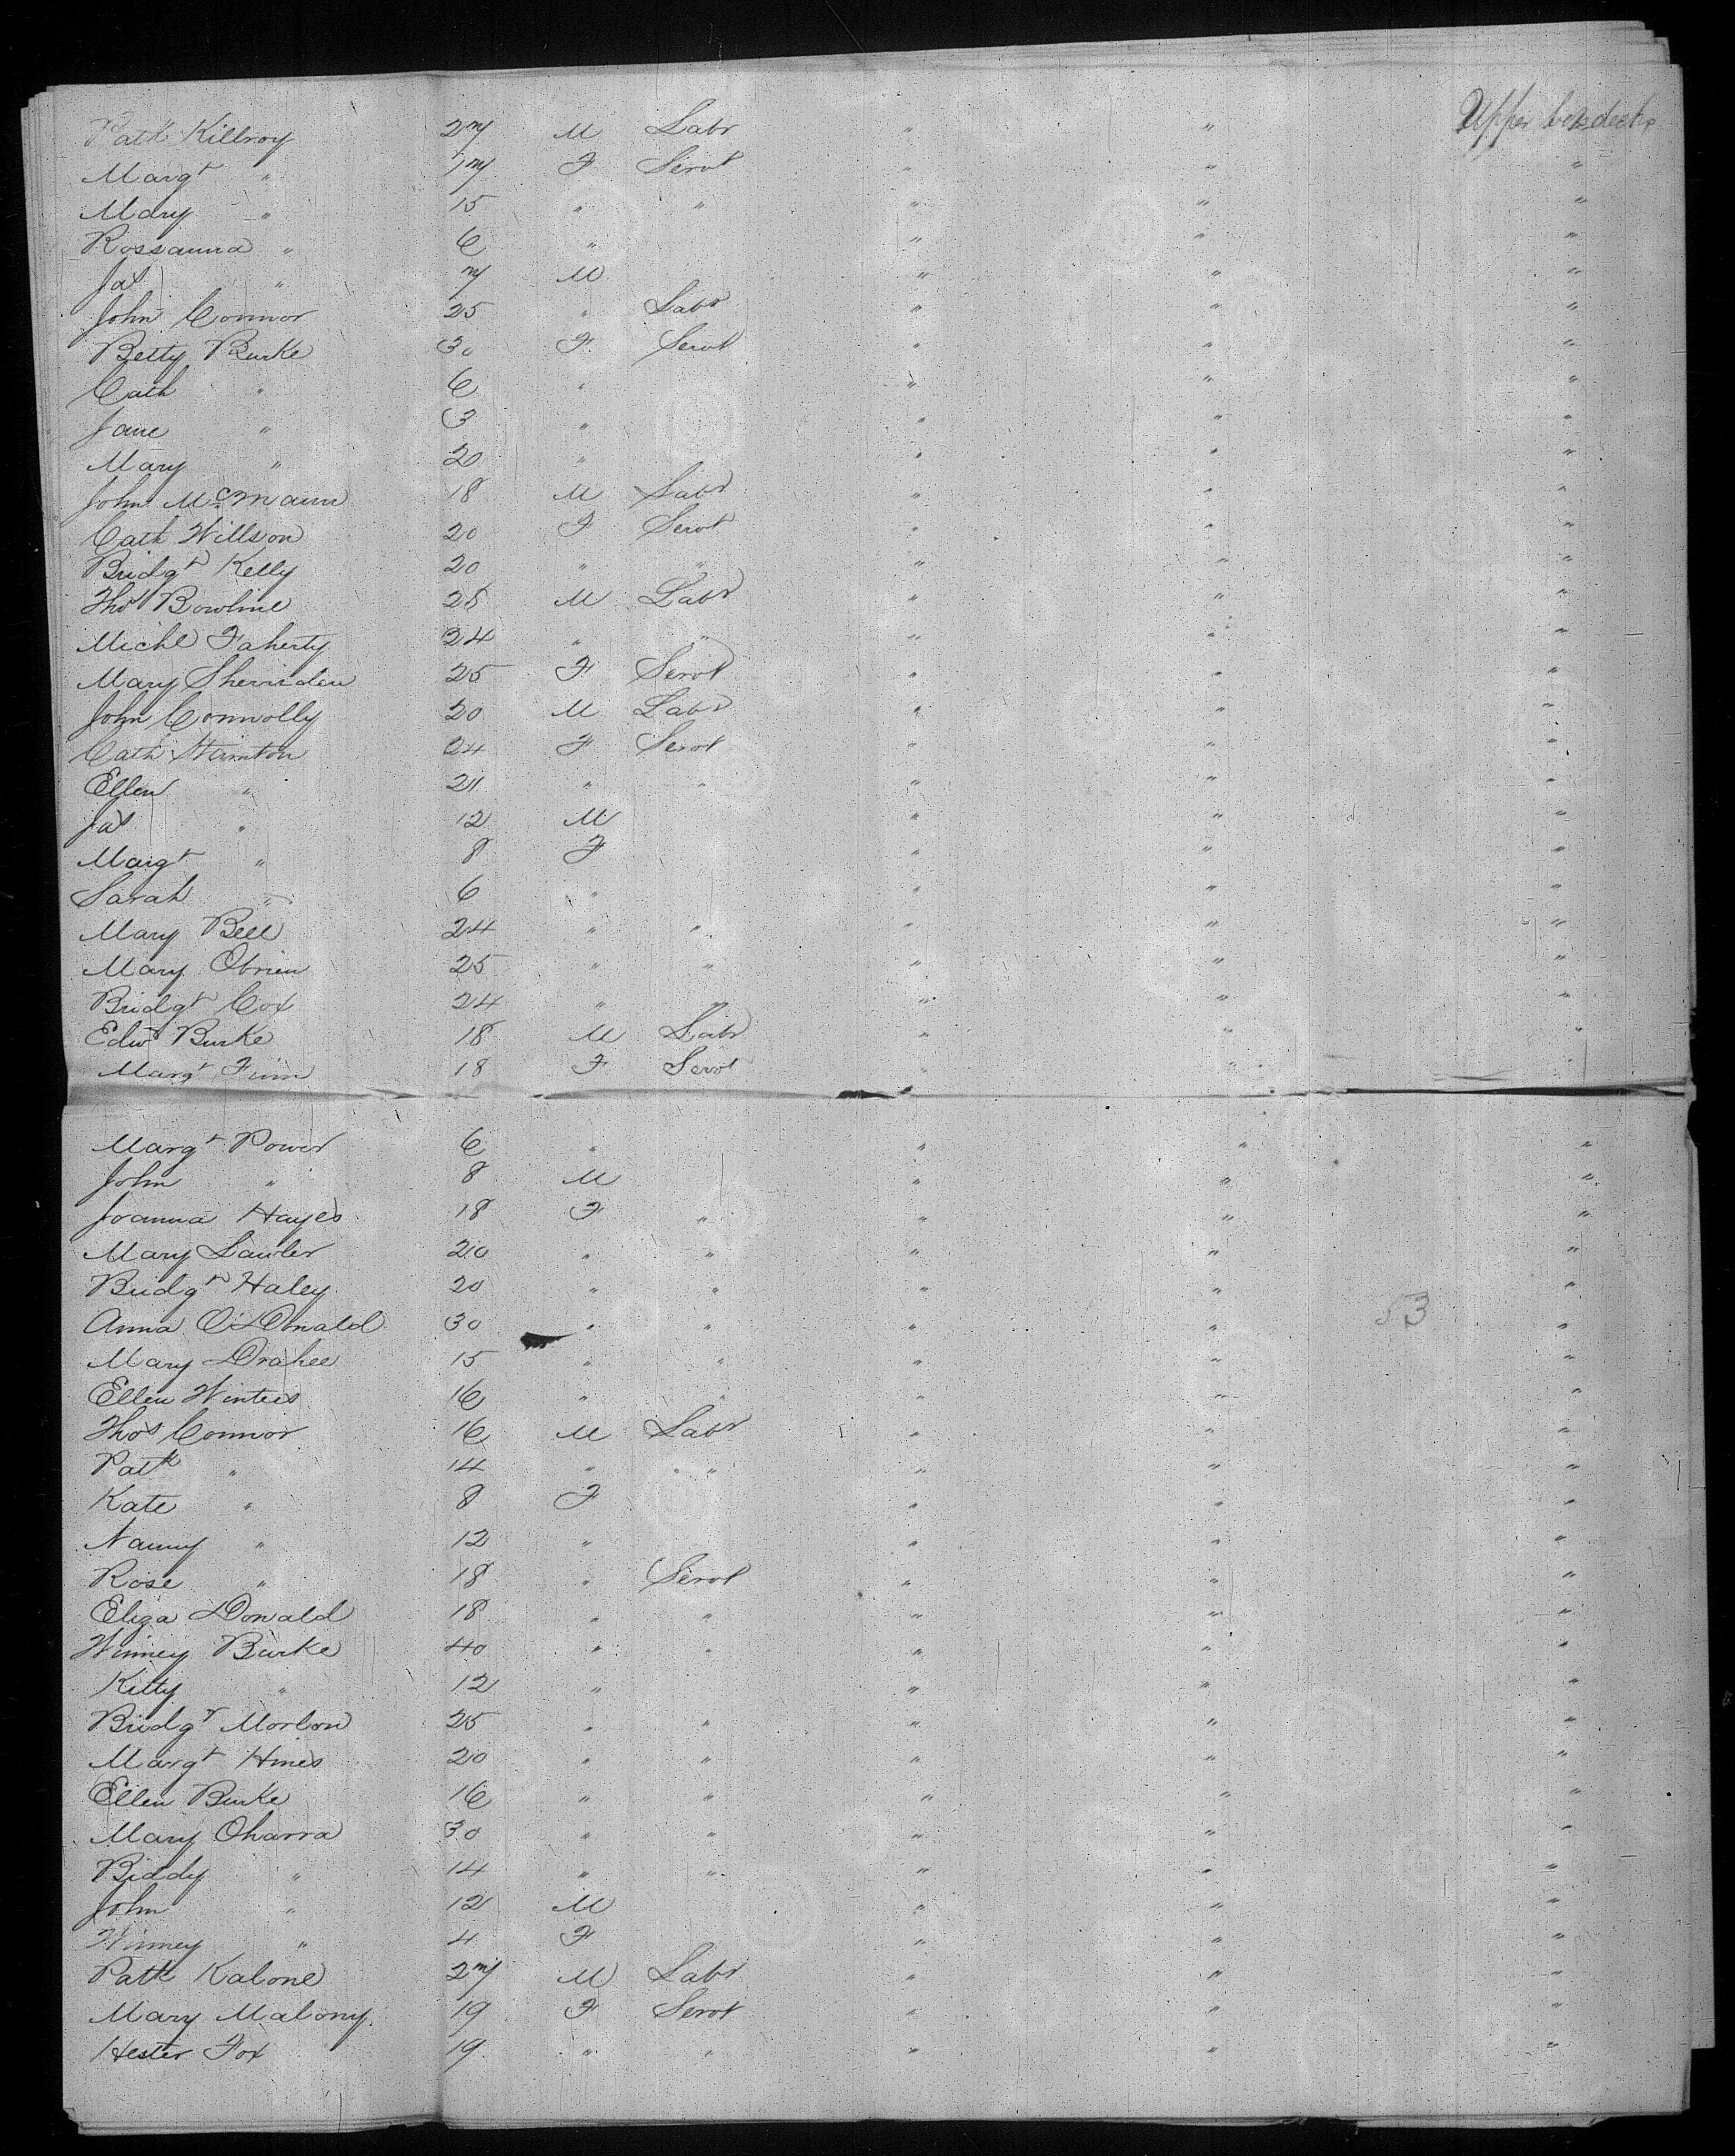 Patk Killroy 27 M Labr " " Upper
Margt " 17 F Servt " " "
Mary " 15 " " " " "
Rossanna " 6 " " " "
Jas " 7 M " " "
John Connor 25 " Labr " " "
Betty Burke 30 F Servt " " "
Cath " 6 " " " "
Jane " 3 " " " "
Mary " 20 " " " "
John McMann 18 M Labr " " "
Cath Willson 20 F Servt " " "
Bridgt Kelly 20 " " " " "
Thos Bowline 25 M Labr " " "
Michl Faherty 24 " " " " "
Mary Sherriden 25 F Servt " " "
John Connolly 20 M Labr " " "
Cath 24 F Servt " " "
Ellen " 21 " " " " "
Jas " 12 M " " "
Margt " 8 F " " "
Sarah " 6 " " " "
Mary Bell 24 " " " " "
Mary Obrien 25 " " " " "
Bridgt Cox 24 " " " " "
Edwd Burke 18 M Labr " " "
Margt Finn 18 F Servt " " "
Margt Power 6 " " " "
John " 8 M " " "
Joanna Hayes 18 F " " " "
Mary Lawler 20 " " " " "
Bridgt Haley 20 " " " " "
Anna O'Donald 30 " " " " 53 "
Mary Drahee 15 " " " " "
Ellen Winters 16 " " " " "
Thos Connor 16 M Labr " " "
Patk " 14 " " " " "
Kate " 8 F " " "
Nanny " 12 " " " "
Rose " 18 " Servt " " "
Eliza Donald 18 " " " " "
Winney Burke 40 " " " " "
Kitty " 12 " " " "
Bridgt Morlon 25 " " " " "
Margt Hines 20 " " " " "
Ellen Burke 16 " " " " "
Mary Oharra 30 " " " " "
Biddy " 14 " " " " "
John " 12 M " " "
Winney " 4 F " " "
Patk Kalone 27 M Labr " " "
Mary Malony 19 F Servt " " "
Hester Fox 19 " " " " "